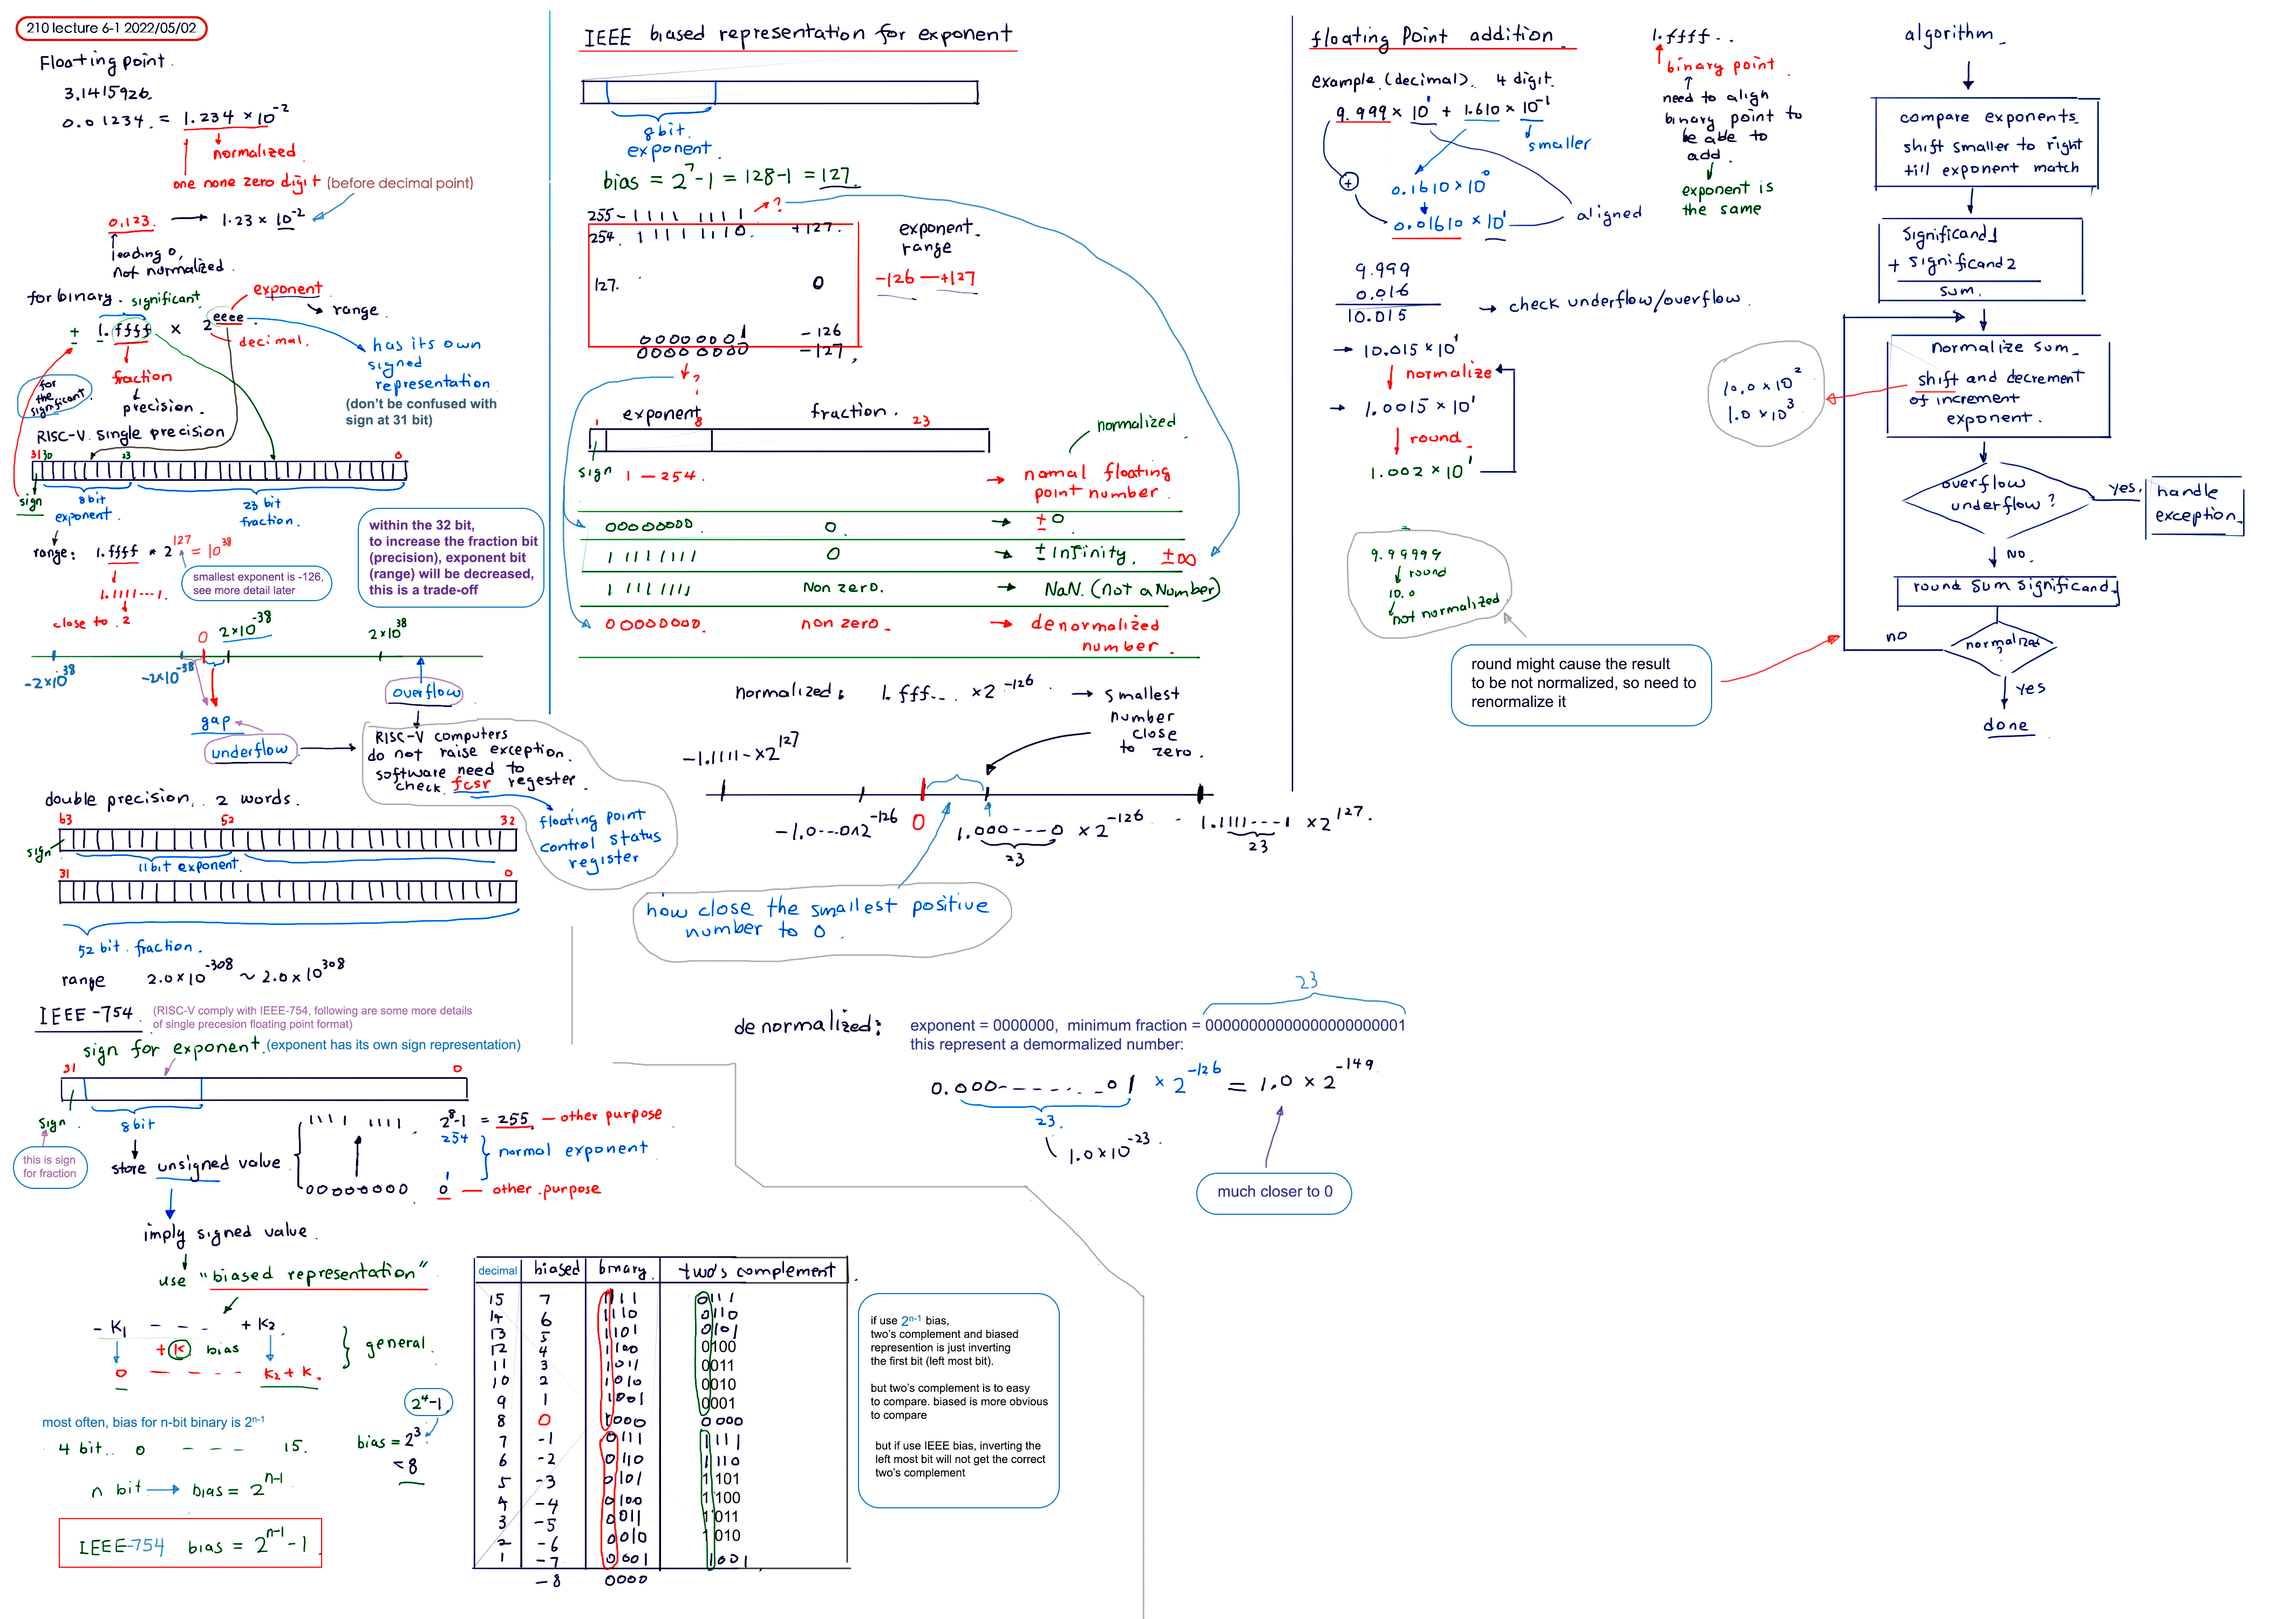 210 lecture 6-1 2022/05/02
Floating point.
3.1415926.
0.01234. = 1.234 × 10^-2
normalized.
one none zero digit (before decimal point)
0.123. → 1.23 × 10^-2
leading 0,
not normalized.
for binary. significant.
exponent.
→ range.
± 1.ffff × 2^eeee
decimal.
has its own
signed
representation
(don't be confused with
sign at 31 bit)
for
the
significant.
fraction
precision.
RISC-V. single precision
31 30 23 0
sign
8bit
exponent.
23 bit
fraction.
range: 1.ffff * 2^127 = 10^38
smallest exponent is -126,
see more detail later
1.1111---1.
close to 2
within the 32 bit,
to increase the fraction bit
(precision), exponent bit
(range) will be decreased,
this is a trade-off
0 2×10^-38 2×10^38
-2×10^38 -2×10^-38
overflow
gap
underflow
RISC-V computers
do not raise exception.
software need to
check fcsr regester.
floating point
control status
register
double precision. 2 words.
63 52 32
sign
11bit exponent.
31 0
52 bit fraction.
range 2.0×10^-308 ~ 2.0×10^308
IEEE-754. (RISC-V comply with IEEE-754, following are some more details
of single precesion floating point format)
sign for exponent. (exponent has its own sign representation)
31 0
sign
8bit
this is sign
for fraction
store unsigned value
1111 1111. 2^8-1 = 255 — other purpose
254
normal exponent
1
00000000 0 — other purpose
imply signed value.
use "biased representation"
- K1 - - - - + K2
+ K bias
0 - - - - K2 + K.
general.
most often, bias for n-bit binary is 2^n-1
4 bit.. 0 - - - 15.
2^4-1
bias = 2^3.
= 8
n bit → bias = 2^n-1
IEEE-754 bias = 2^n-1 - 1
decimal biased binary. two's complement
15 7 1111 0111
14 6 1110 0110
13 5 1101 0101
12 4 1100 0100
11 3 1011 0011
10 2 1010 0010
9 1 1001 0001
8 0 1000 0000
7 -1 0111 1111
6 -2 0110 1110
5 -3 0101 1101
4 -4 0100 1100
3 -5 0011 1011
2 -6 0010 1010
1 -7 0001 1001
-8 0000
if use 2^n-1 bias,
two's complement and biased
represention is just inverting
the first bit (left most bit).
but two's complement is to easy
to compare. biased is more obvious
to compare
but if use IEEE bias, inverting the
left most bit will not get the correct
two's complement
IEEE biased representation for exponent
8bit.
exponent.
bias = 2^7-1 = 128-1 = 127.
255 - 1111 1111 → ?
254. 1111 1110. +127.
127. 0
00000001 -126
00000000 -127,
?
exponent.
range
-126 — +127
exponent fraction.
1 8 23
sign
normalized.
1 — 254. → normal floating
point number.
00000000 0. → ± 0
11111111 0 → ± Infinity. ±∞
1111111 Non zero. → NaN. (not a Number)
00000000. non zero. → denormalized
number.
normalized: 1.fff... ×2^-126. → smallest
number
close
to zero.
-1.1111- ×2^127
-1.0---0×2^-126 0 1.000---0 ×2^-126 - 1.1111---1 ×2^127.
23 23
how close the smallest positive
number to 0.
denormalized: exponent = 0000000, minimum fraction = 00000000000000000000001
23
this represent a demormalized number:
0.000------01 × 2^-126 = 1.0 × 2^-149
23.
1.0×10^-23.
much closer to 0
floating Point addition.
example. (decimal). 4 digit.
9.999 × 10^1 + 1.610 × 10^-1
smaller
+
0.1610×10^0
0.01610 × 10^1
aligned
9.999
0.016
10.015
→ check underflow/overflow.
→ 10.015×10^1
normalize
→ 1.0015 × 10^1
round
1.002 × 10^1
9.99999
round
10.0
not normalized
round might cause the result
to be not normalized, so need to
renormalize it
1.ffff...
binary point
need to align
binary point to
be able to
add.
exponent is
the same
algorithm.
compare exponents.
shift smaller to right
till exponent match
significand1
+ significand2
sum.
normalize sum.
shift and decrement
of increment
exponent.
10.0 × 10^2
1.0 × 10^3
overflow
underflow?
yes.
handle
exception.
NO.
round sum significand.
no
normalized
?
yes
done